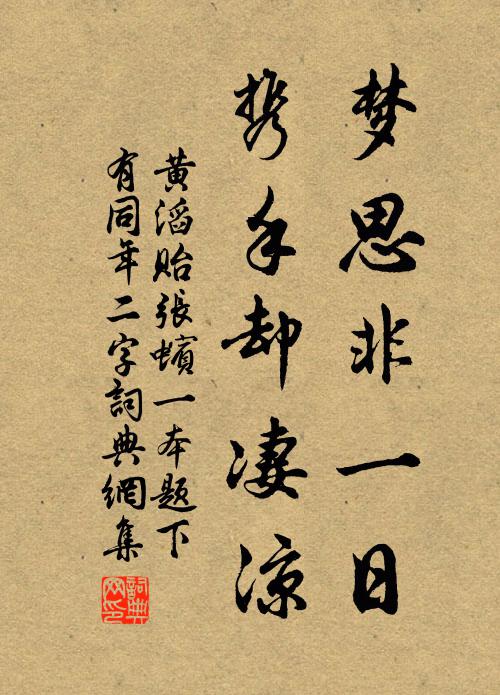 梦思非一日
携手却凄凉
黄滔贻張蠙一本题下
有同年二字詞典網集
詞典网印